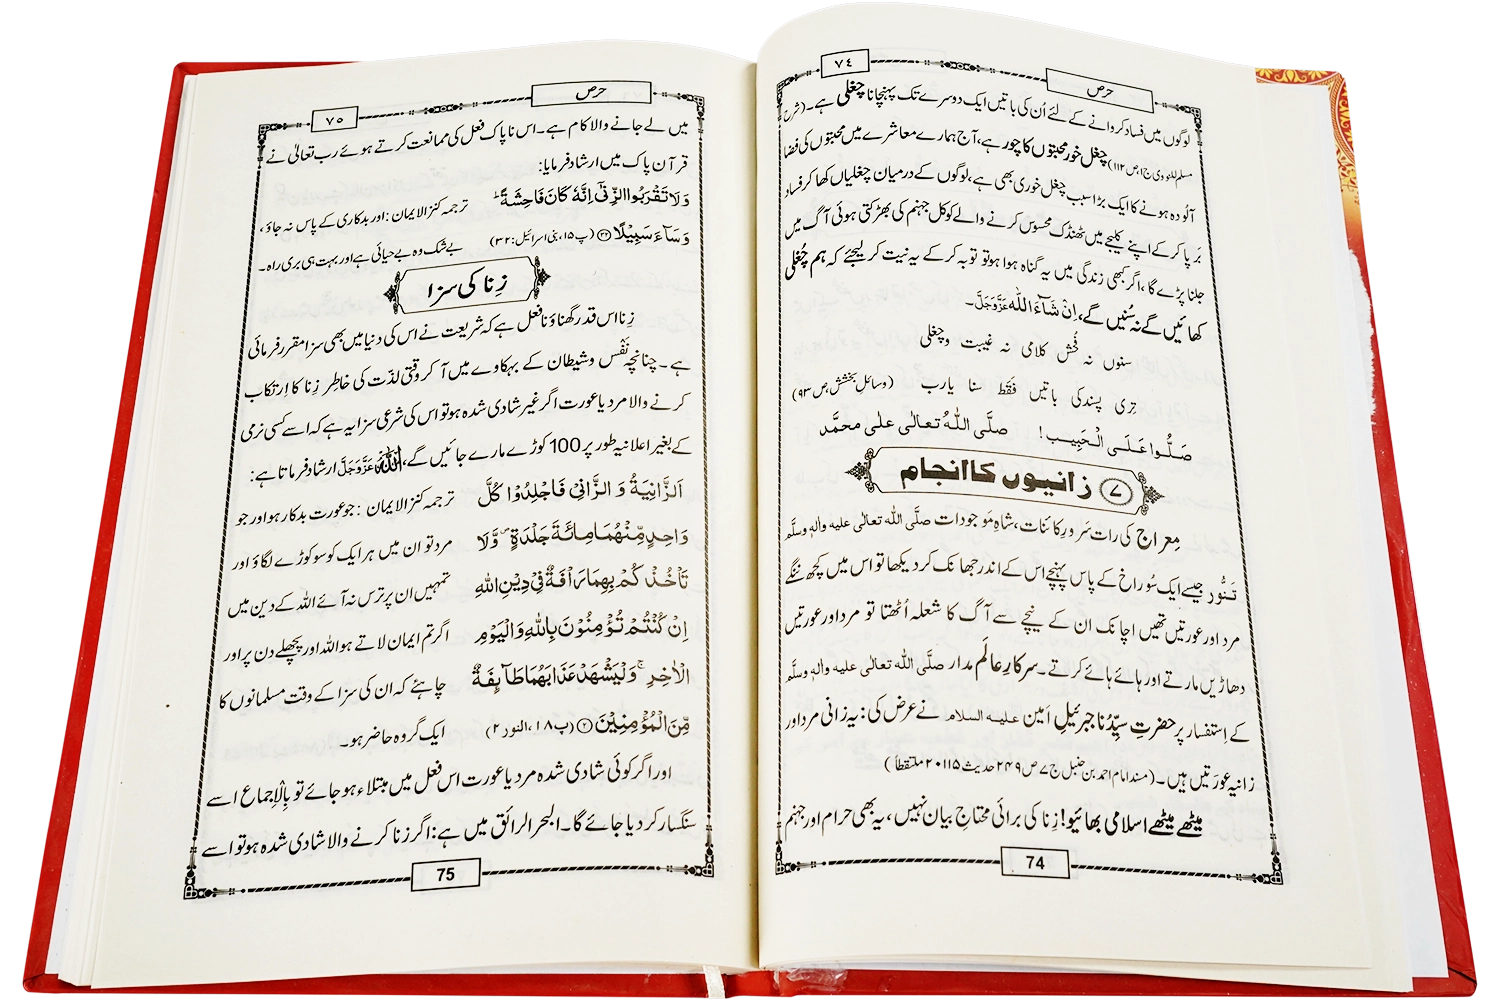 ٧٤
حرص
لوگوں میں فساد کروانے کے لئے اُن کی باتیں ایک دوسرے تک پہنچانا چغلی ہے۔ (شرح
مسلم للنووی ج۱، ص ۱۱۲) چغل خور محبتوں کا چور ہے، آج ہمارے معاشرے میں محبتوں کی فضا
آلُودہ ہونے کا ایک بڑا سبب چغل خوری بھی ہے، لوگوں کے درمیان چغلیاں کھا کر فساد
بَرپا کر کے اپنے کلیجے میں ٹھنڈک محسوس کرنے والے کو کل جہنم کی بھڑکتی ہوئی آگ میں
جلنا پڑے گا، اگر کبھی زندگی میں یہ گناہ ہوا ہو تو توبہ کر کے یہ نیت کر لیجئے کہ ہم چُغلی
کھائیں گے نہ سُنیں گے، اِنْ شَآءَ اللّٰه عَزَّوَجَلَّ۔
سنوں نہ فُحش کلامی نہ غیبت و چغلی
تِری پسند کی باتیں فقط سنا یارب (وسائلِ بخشش، ص ۹۳)
صَلُّوا عَلَی الْحَبِیب! صلَّی اللّٰهُ تعالٰی علٰی محمَّد
٧ زانیوں کا انجام
مِعراج کی رات سَروَرِ کائنات، شاہِ مَوجودات صلَّی اللّٰه تعالٰی علیه واٰلهٖ وسلَّم
تَنُّور جیسے ایک سُوراخ کے پاس پہنچے اس کے اندر جھانک کر دیکھا تو اس میں کچھ ننگے
مرد اور عورتیں تھیں اچانک ان کے نیچے سے آگ کا شعلہ اُٹھتا تو مرد اور عورتیں
دھاڑیں مارتے اور ہائے ہائے کرتے۔ سرکارِ عالَم مدار صلَّی اللّٰه تعالٰی علیه واٰلهٖ وسلَّم
کے اِستفسار پر حضرتِ سیِّدُنا جبرئیلِ اَمین علیه السلام نے عرض کی: یہ زانی مرد اور
زانیہ عورَتیں ہیں۔ (مسند امام احمد بن حنبل ج۷ ص۲۴۹ حدیث ۲۰۱۱۵ ملتقطاً)
میٹھے میٹھے اسلامی بھائیو! زِنا کی برائی محتاجِ بیان نہیں، یہ بھی حرام اور جہنم
74
حرص
٧٥
میں لے جانے والا کام ہے۔ اس ناپاک فعل کی ممانعت کرتے ہوئے رب تعالیٰ نے
قرآن پاک میں ارشاد فرمایا:
وَلَا تَقْرَبُوا الزِّنٰۤى اِنَّهٗ كَانَ فَاحِشَةًؕ ترجمہ کنزالایمان: اور بدکاری کے پاس نہ جاؤ،
وَسَآءَ سَبِیْلًا ﴿٣٢﴾ (پ١٥، بنی اسرائیل: ٣٢) بے شک وہ بے حیائی ہے اور بہت ہی بری راہ۔
زِنا کی سزا
زِنا اس قدر گھناؤنا فعل ہے کہ شریعت نے اس کی دنیا میں بھی سزا مقرر فرمائی
ہے۔ چنانچہ نَفْس و شیطان کے بہکاوے میں آ کر وقتی لذّت کی خاطِر زِنا کا اِرتکاب
کرنے والا مرد یا عورت اگر غیر شادی شدہ ہو تو اس کی شرعی سزا یہ ہے کہ اسے کسی نرمی
کے بغیر اعلانیہ طور پر 100 کوڑے مارے جائیں گے، اللّٰه عَزَّوَجَلَّ ارشاد فرماتا ہے:
اَلزَّانِیَةُ وَ الزَّانِیْ فَاجْلِدُوْا كُلَّ ترجمہ کنزالایمان: جو عورت بدکار ہو اور جو
وَاحِدٍ مِّنْهُمَا مِائَةَ جَلْدَةٍ۪ وَّلَا مرد تو ان میں ہر ایک کو سو کوڑے لگاؤ اور
تَاْخُذْكُمْ بِهِمَا رَاْفَةٌ فِیْ دِیْنِ اللّٰهِ تمہیں ان پر ترس نہ آئے اللہ کے دین میں
اِنْ كُنْتُمْ تُؤْمِنُوْنَ بِاللّٰهِ وَ الْیَوْمِ اگر تم ایمان لاتے ہو اللہ اور پچھلے دن پر اور
الْاٰخِرِۚ وَلْیَشْهَدْ عَذَابَهُمَا طَآىِٕفَةٌ چاہئے کہ ان کی سزا کے وقت مسلمانوں کا
مِّنَ الْمُؤْمِنِیْنَ ﴿٢﴾ (پ١٨، النور ٢) ایک گروہ حاضر ہو۔
اور اگر کوئی شادی شدہ مرد یا عورت اس فعل میں مبتلاء ہو جائے تو بِالْاِجماع اسے
سنگسار کر دیا جائے گا۔ البحر الرائق میں ہے: اگر زنا کرنے والا شادی شدہ ہو تو اسے
75